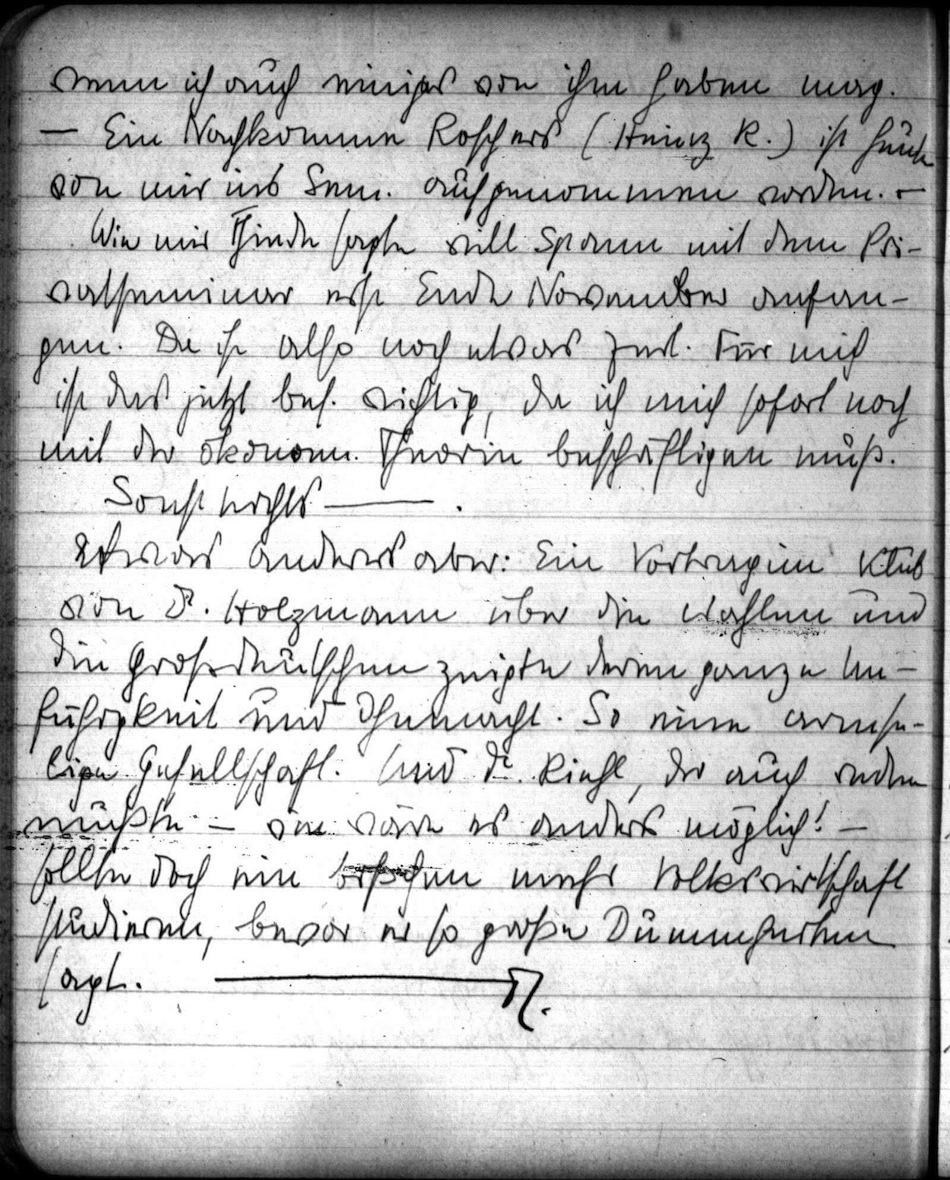 wenn ich auch einiges von ihm haben mag.
— Ein Nachkomme Roschers (Heinz R.) ist heute
von mir ins Sem. aufgenommen worden. –
Wie mir Thinde sagte will Spann mit dem Pri-
vatseminar erst Ende November anfan-
gen. Da ist also noch etwas Zeit. Für mich
ist das jetzt bes. wichtig, da ich mich sofort noch
mit der ökonom. Theorie beschäftigen muß.
Sonst nichts ——— .
Etwas anderes aber: Ein Vortrag im Klub
von Dr. Holzmann über die Wahlen und
die Großdeutschen zeigte deren ganze Un-
fähigkeit und Ohnmacht. So eine armse-
lige Gesellschaft. Und Dr. Riehl, der auch reden
mußte – wie wäre es anders möglich! –
sollte doch ein bißchen mehr Volkswirtschaft
studieren, bevor er so große Dummheiten
sagt. ———